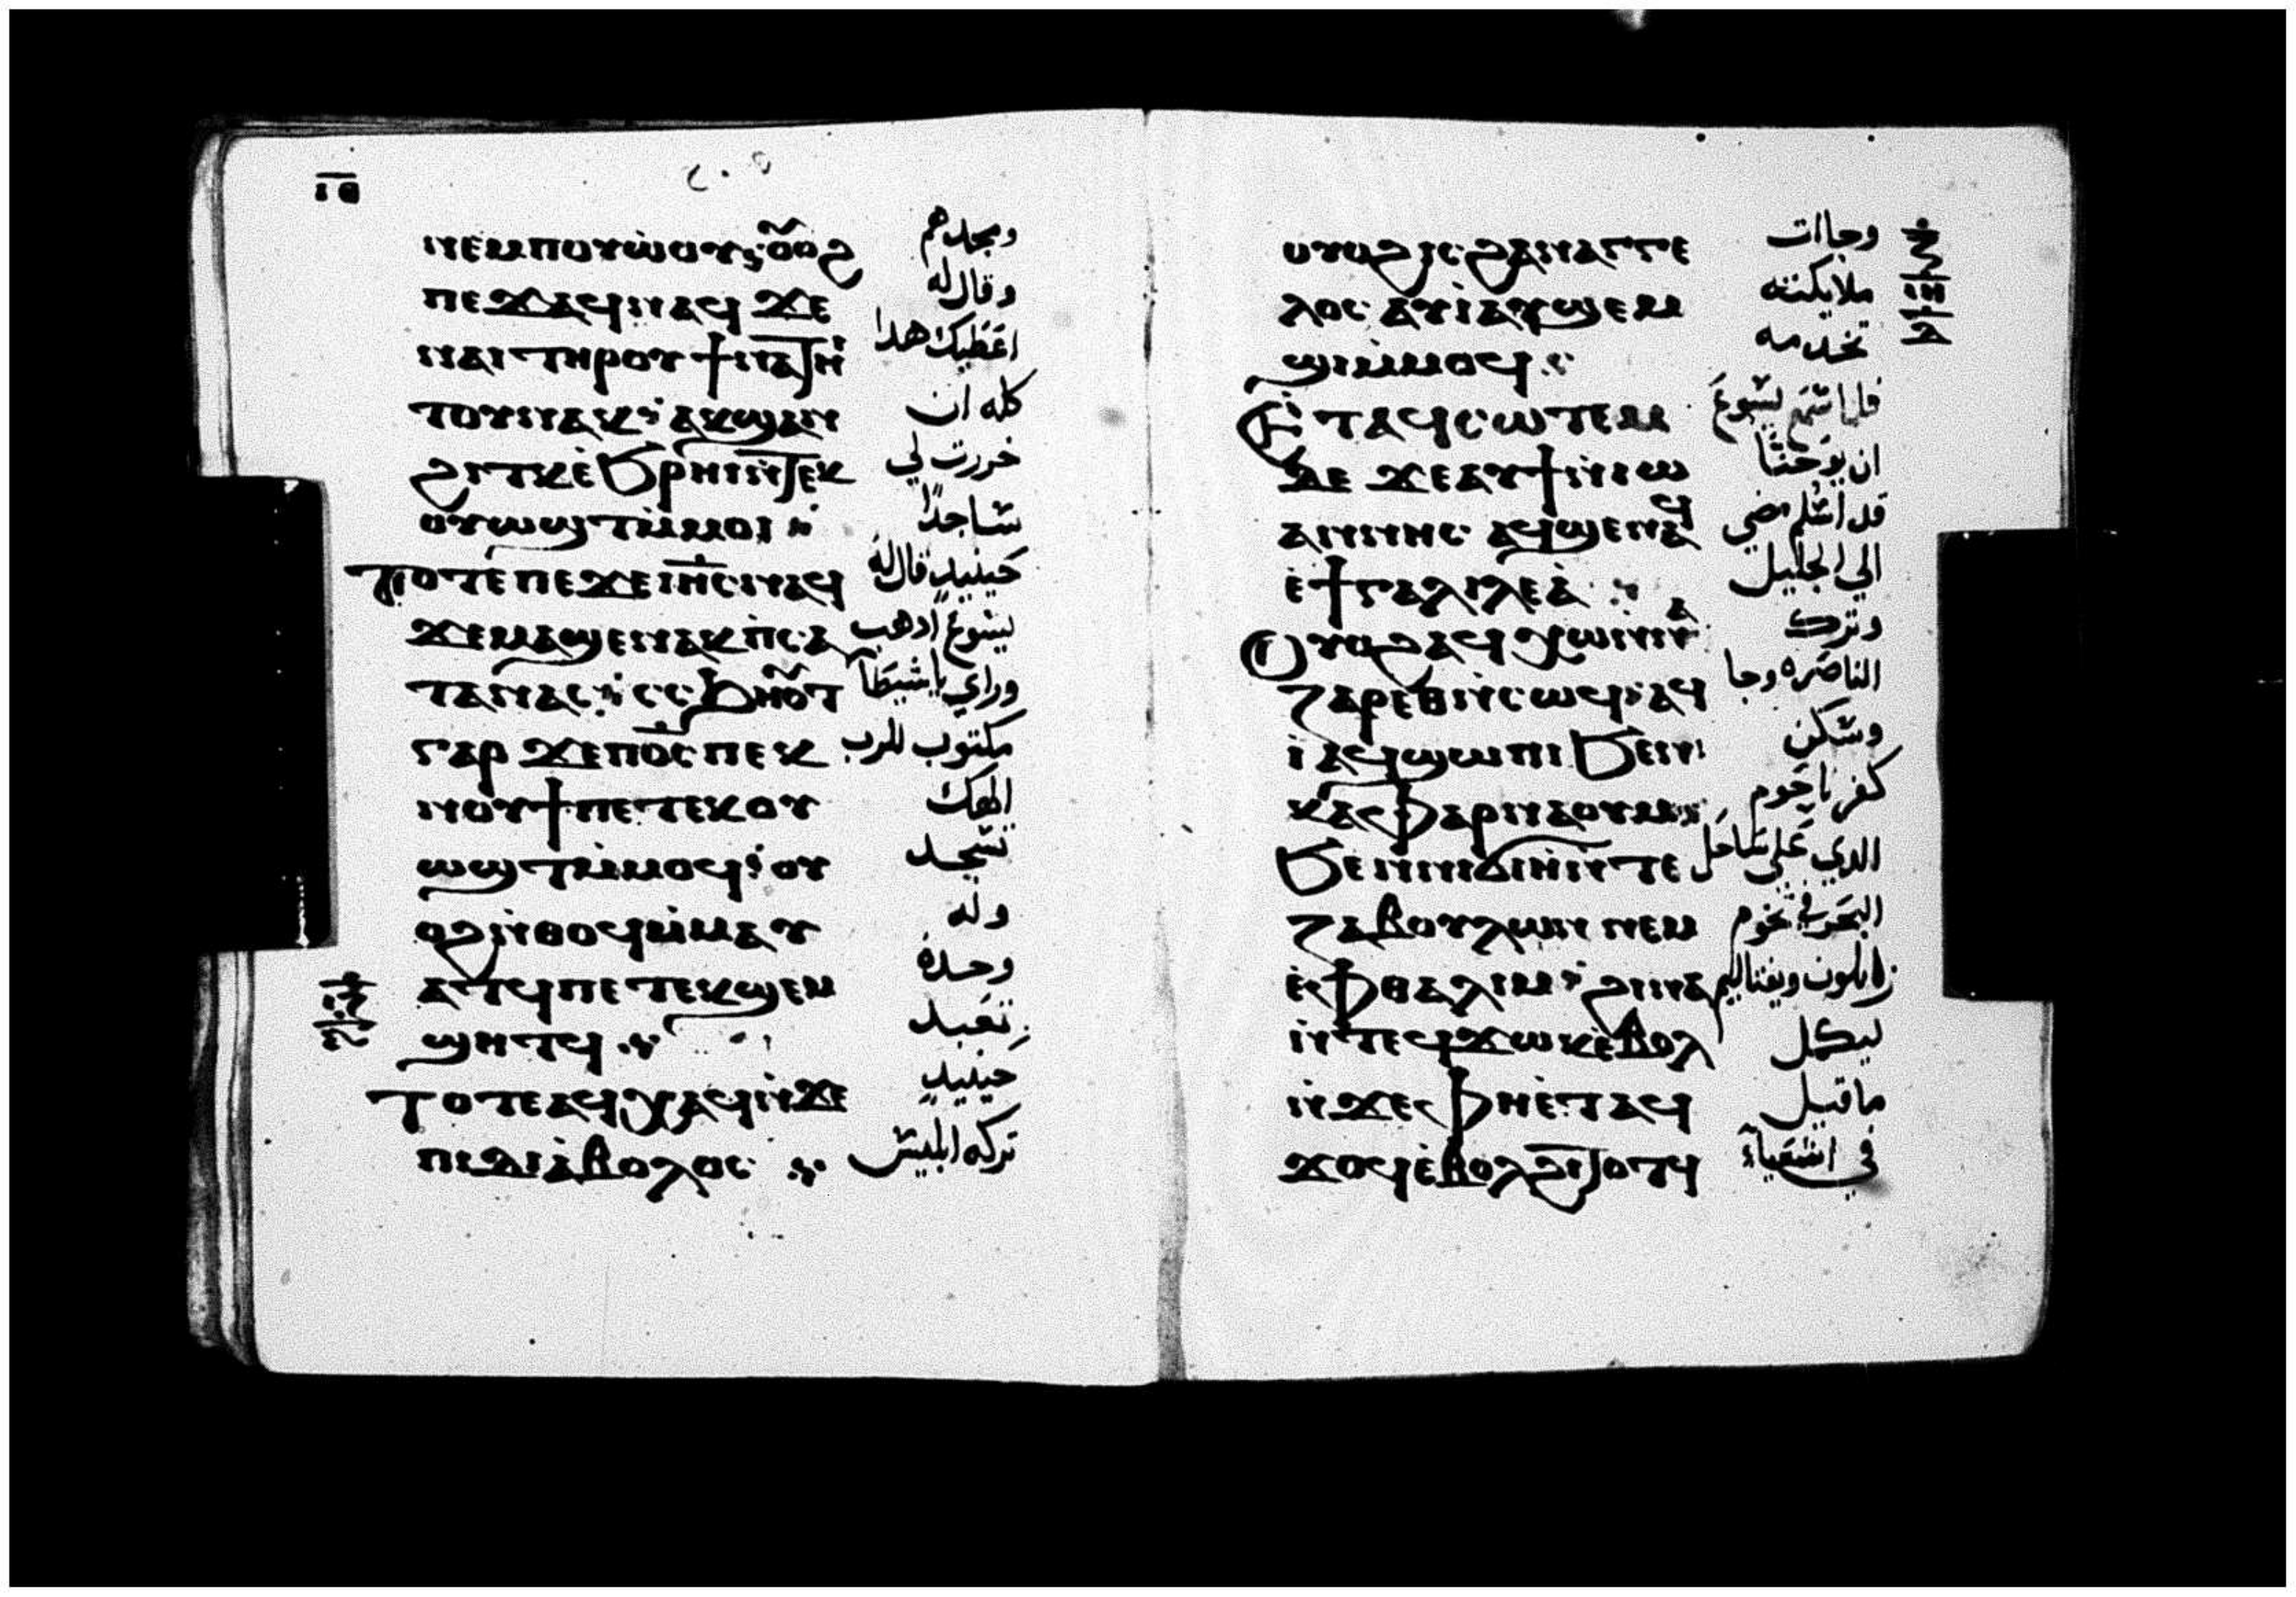 ⲓⲑ
ⲛⲉⲙⲡⲟⲩⲱⲟⲩ ⲟⲩⲟϩ ومجدهم
ⲡⲉϫⲁϥⲛⲁϥ ϫⲉ وقال له
ⲛⲁⲓⲧⲏⲣⲟⲩϯⲛⲁⲧⲏⲓ اعَطيك هدا
ⲧⲟⲩⲛⲁⲕ ⲁⲕϣⲁⲛ كله ان
ϩⲓⲧⲕ ⲉ̀ϧⲣⲏⲓⲛⲧⲉⲕ خررت لي
ⲟⲩⲱϣⲧⲙ̀ⲙⲟⲓ ساجدًا
ⲧⲟⲧⲉⲡⲉϫⲉⲓⲏ̅ⲥⲛⲁϥ حينيدٍ قال له
ϫⲉⲙⲁϣⲉⲛⲁⲕⲛ̀ⲥⲁ يسوع ادهب
ⲧⲁⲛⲁⲥ ⲥⲥϧⲏⲟⲩⲧ وراي يا شيطَا
ⲅⲁⲣ ϫⲉⲡⲟ̅ⲥⲡⲉⲕ مكتوب للرب
ⲛⲟⲩϯⲡⲉⲧⲉⲕⲟⲩ الهك
ⲱϣⲧⲙ̀ⲙⲟϥ ⲟⲩ تسجد
ⲟϩⲛ̀ⲑⲟϥⲙ̀ⲙⲁⲩ وله
ⲁⲧϥⲡⲉⲧⲉⲕϣⲉⲙ وحده
ϣⲏⲧϥ تعَبد
ⲧⲟⲧⲉⲁϥⲭⲁϥⲛ̀ϫⲉ حينيدٍ
ⲡⲓⲇⲓⲁ̀ⲃⲟⲗⲟⲥ تركه ابليس
ⲟⲩⲟϩⲓⲥϩⲁⲛⲁⲅⲅⲉ وجاات
ⲗⲟⲥ ⲁⲩⲓ̀ⲁⲩϣⲉⲙ ملايكته
ϣⲓⲙ̀ⲙⲟϥ تخدمه
ⲉ̀ⲧⲁϥⲥⲱⲧⲉⲙ فلما سمع يسوعَ
ⲇⲉ ϫⲉⲁⲩϯⲛ̀ⲓⲱ ان يوحَنا
ⲁⲛⲛⲏⲥ ⲁϥϣⲉⲛⲁϥ قد اسلم مضي
ⲉ̀ϯⲅⲁⲗⲓⲗⲉⲁ̀ الي الجليل
ⲟⲩⲟϩⲁϥⲭⲱⲛ̀ⲛⲁ وترك
ⲍⲁⲣⲉⲑⲛ̀ⲥⲱϥ ⲁϥ الناصَره وجا
ⲓ̀ⲁϥϣⲱⲡⲓ ϧⲉⲛ وسكن
ⲕⲁⲫⲁⲣⲛⲁⲟⲩⲙ كفرناحَوم
ϧⲉⲛⲛⲓϭⲓⲏⲛ̀ⲧⲉ الدي عَلي ساحَل
ⲍⲁⲃⲟⲩⲗⲱⲛ ⲛⲉⲙ البحَر في تخوم
ⲉ̀ⲫⲑⲁⲗⲓⲙ ϩⲓⲛⲁ زابلون ونفتاليم
ⲛ̀ⲧⲉϥϫⲱⲕⲉ̀ⲃⲟⲗ ليكمل
ⲛ̀ϫⲉⲫⲏⲉ̀ⲧⲁϥ ماقيل
ϫⲟϥⲉ̀ⲃⲟⲗϩⲓⲧⲟⲧϥ في اشعَياء